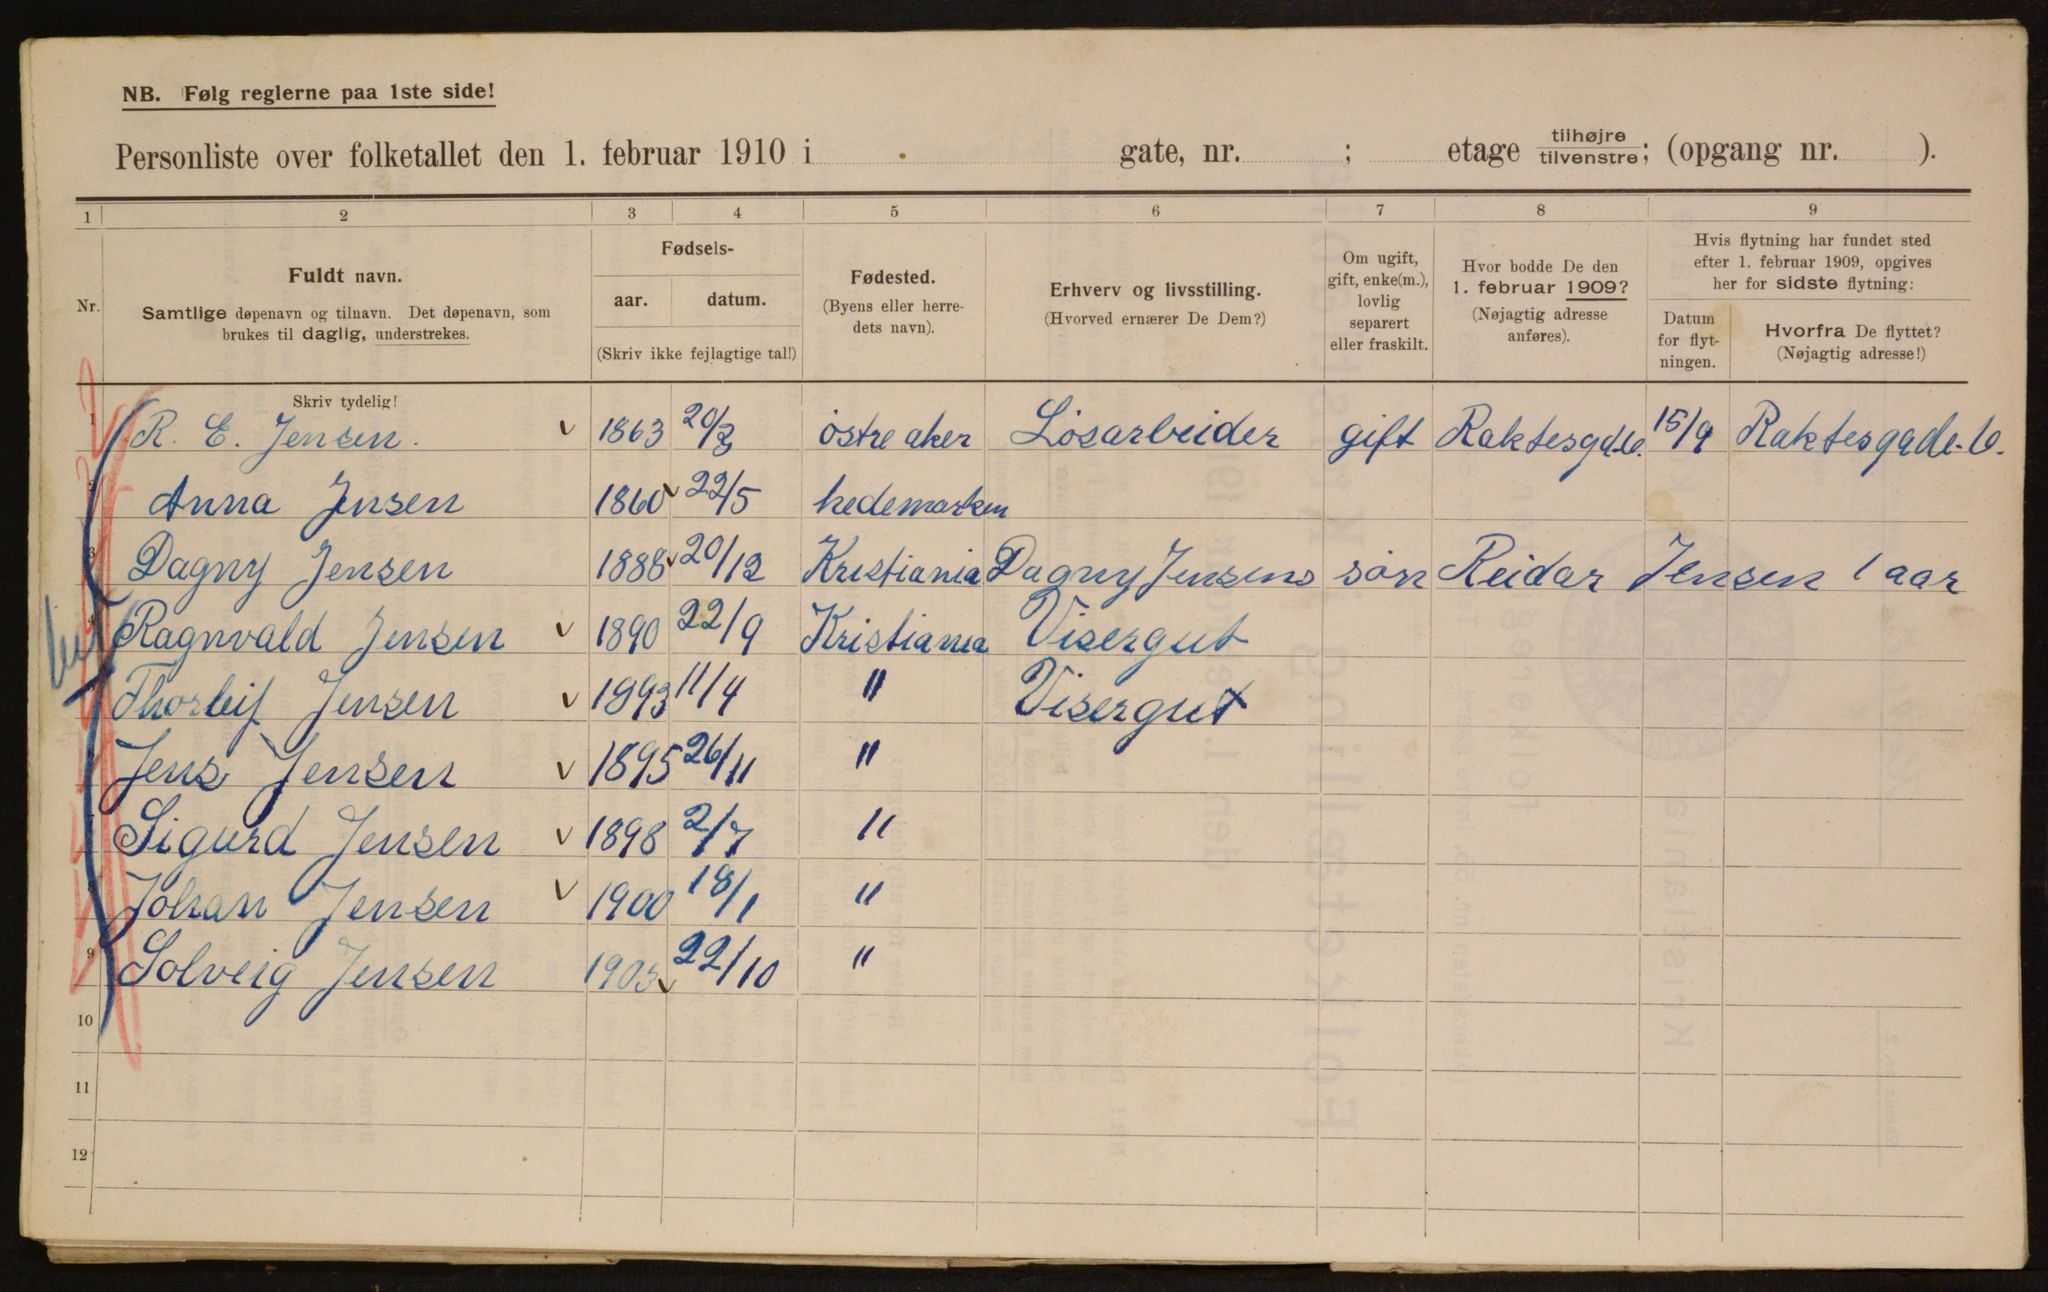 NB. Følg reglerne paa 1ste side!
Personliste over folketallet den 1. februar 1910 i gate, nr. ; etage tilhøjre tilvenstre; (opgang nr. ).
1 2 3 4 5 6 7 8 9
Nr.
Fuldt navn.
Samtlige døpenavn og tilnavn. Det døpenavn, som
brukes til daglig, understrekes.
Skriv tydelig!
Fødsels-
aar. datum.
(Skriv ikke fejlagtige tal!)
Fødested.
(Byens eller herre-
dets navn).
Erhverv og livsstilling.
(Hvorved ernærer De Dem?)
Om ugift,
gift, enke(m.),
lovlig
separert
eller fraskilt.
Hvor bodde De den
1. februar 1909?
(Nøjagtig adresse
anføres).
Hvis flytning har fundet sted
efter 1. februar 1909, opgives
her for sidste flytning:
Datum
for flyt-
ningen.
Hvorfra De flyttet?
(Nøjagtig adresse!)
1 R. E. Jensen. 1863 20/3 östre aker Lösarbeider gift 15/9
2 Anna Jensen 1860 22/5 hedemarken
3 Dagny Jensen 1888 20/12 Kristiania Dagny Jensens sön Reidar Jensen 1 aar
4 Ragnvald Jensen 1890 22/9 Kristiania Visergut
Thorleif Jensen 1893 11/4 " Visergut
Jens Jensen 1895 26/11 "
Sigurd Jensen 1898 2/7 "
8 Johan Jensen 1900 18/1 "
9 Solveig Jensen 22/10 "
10
11
12